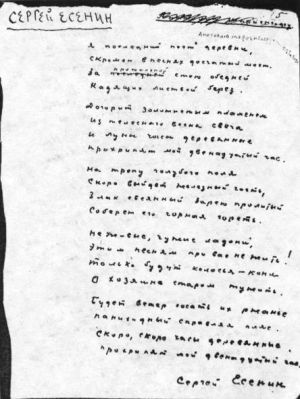 СЕРГЕЙ ЕСЕНИН
Я последний поэт деревни,
Скромен в песнях дощатый мост.
За прощальной стою обедней
Кадящих листвой берез.
Догорит золотистым пламенем
Из телесного воска свеча
И луны часы деревянные
Прохрипят мой двенадцатый час.
На тропу голубого поля
Скоро выйдет железный гость,
Злак овсяный зарею пролитый
Соберет его черная горсть.
Не живые, чужие ладони,
Этим песням при вас не жить!
Только будут колосья-кони
О хозяине старом тужить.
Будет ветер сосать их ржанье
Панихидный справляя пляс.
Скоро, скоро часы деревянные
Прохрипят мой двенадцатый час.
Сергей Есенин